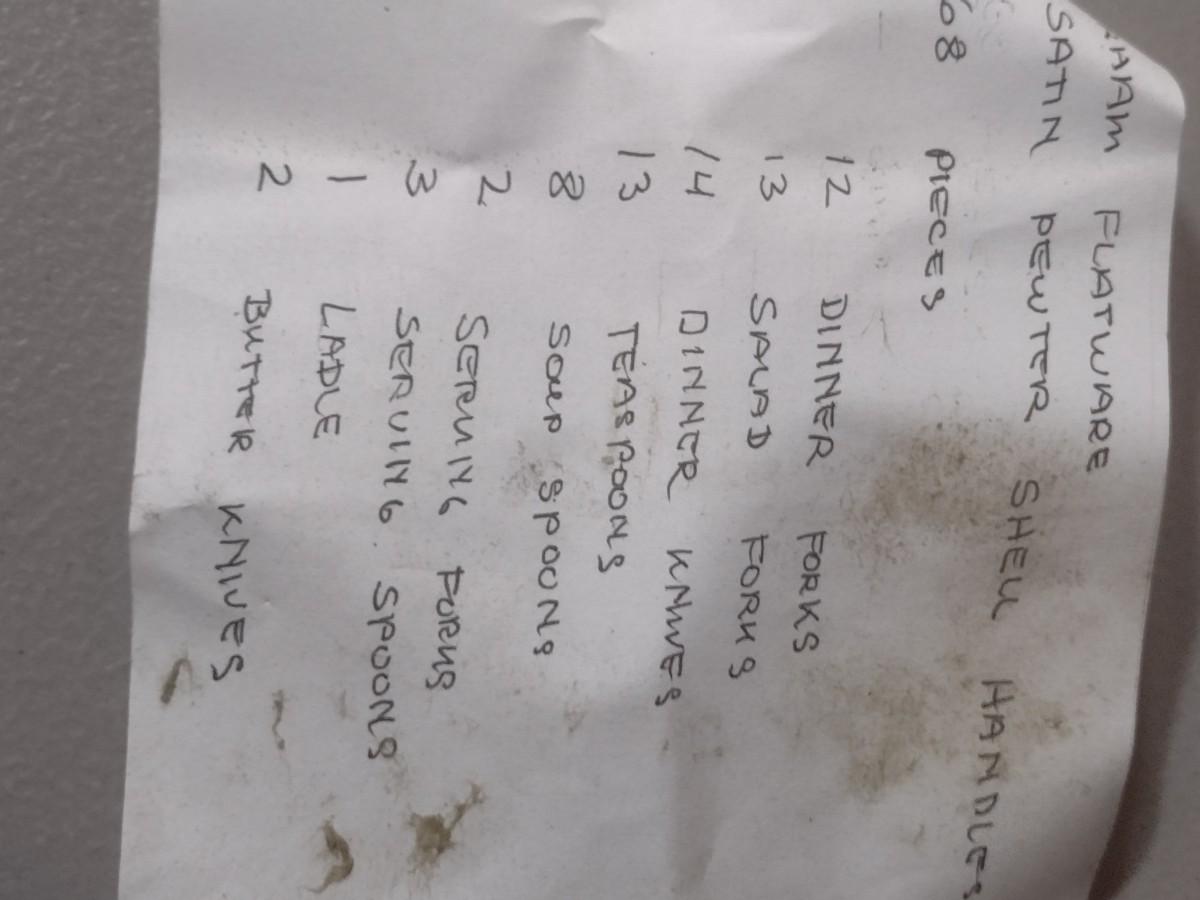 FLATWARE
SATIN PEWTER SHELL HANDLES
68 PIECES
12 DINNER FORKS
13 SALAD FORKS
14 DINNER KNIVES
13 TEASPOONS
8 SOUP SPOONS
2 SERVING FORKS
3 SERVING SPOONS
1 LADLE
2 BUTTER KNIVES